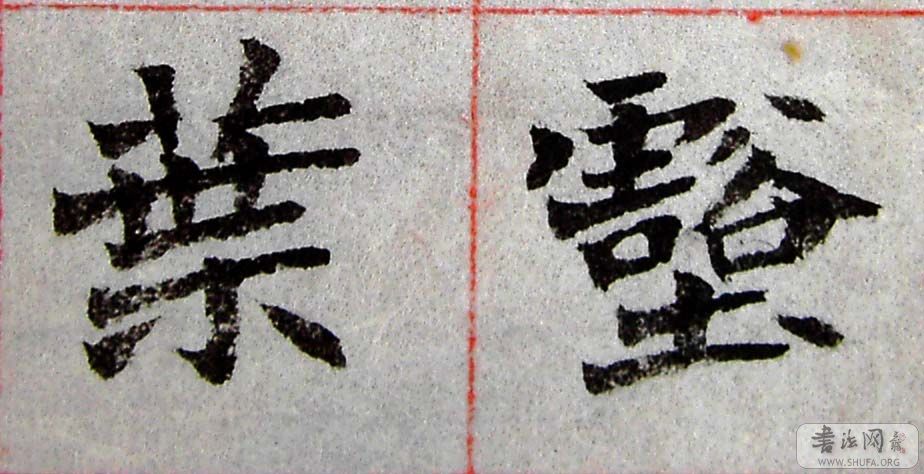 壑
葉
書法网
WWW.SHUFA.ORG